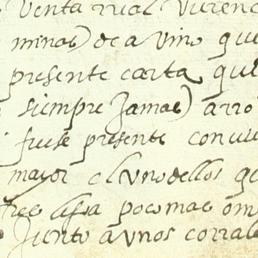 venta rrial vieren
menas) de a vino que
presente carta que
siempre Jamas) arro
fuese presente convie
mayor el uno dellos q
tres lissa poco mas om
Jiento a unos corrale